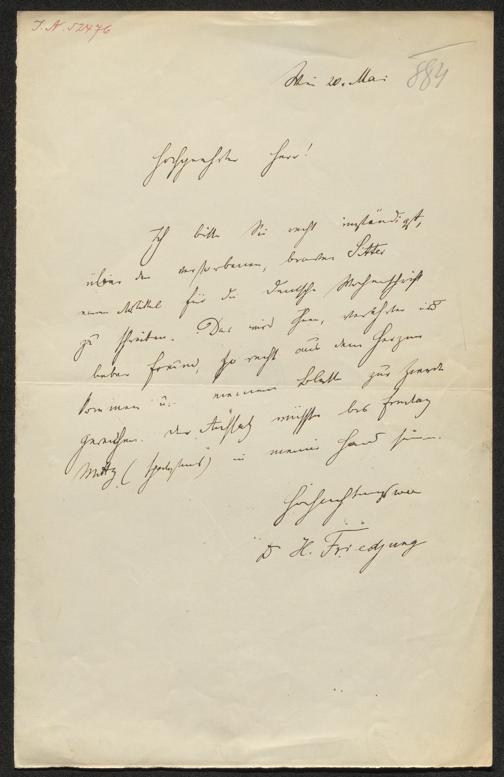 I. N. 52476
884
Wien 20. Mai
Hochgeehrter Herr!
Ich bitte Sie recht inständigst,
über den verstorbenen, braven Sitter
einen Artikel für die Deutsche Wochenschrift
zu schreiben. Das wird Ihnen, verehrter und
lieber Freund, so recht aus dem Herzen
kommen u. meinem Blatte zur Zierde
gereichen. Der Aufsatz müßte bis Freitag
Mittag (spätestens) in meiner Hand sein.
Hochachtungsvoll
Dr H. Friedjung